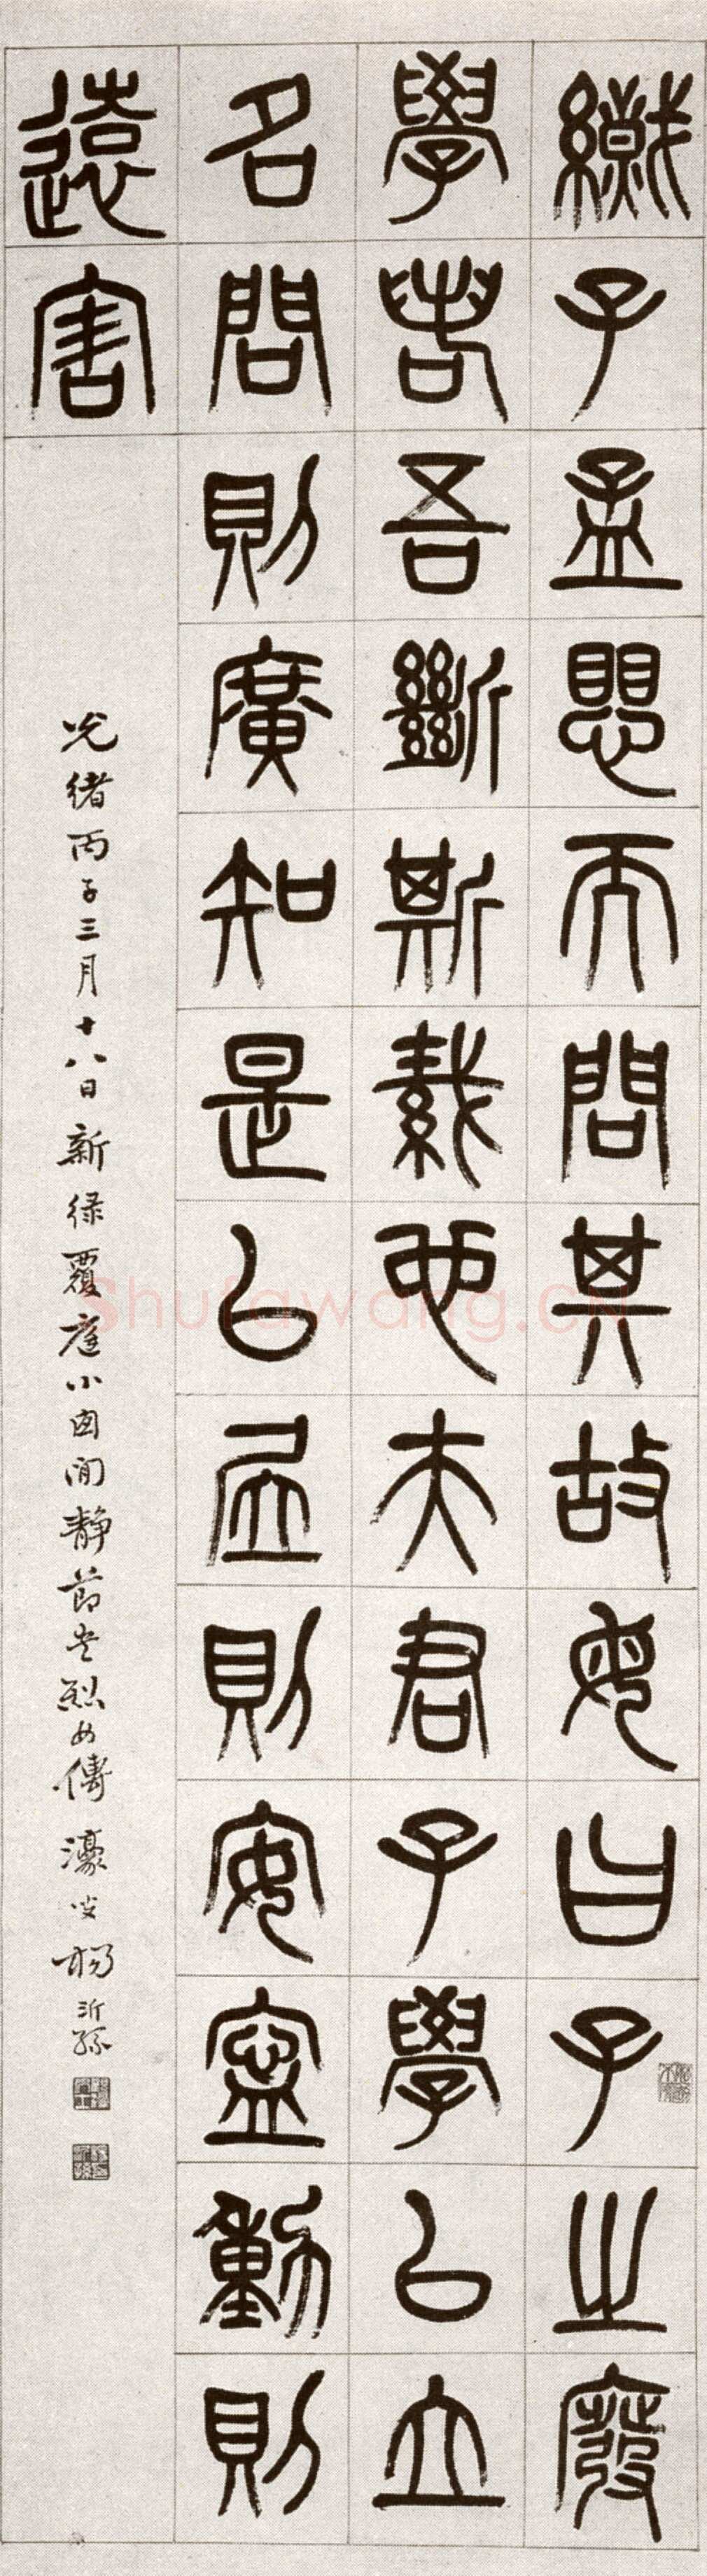 織子孟懼而問其故母曰子之廢
學若吾斷斯織也夫君子學以立
名問則廣知是以居則安寧動則
遠害
光緒丙子三月十八日新綠覆庭小窗閒靜節書列女傳 濠叟楊沂孫
Shufawang.CN